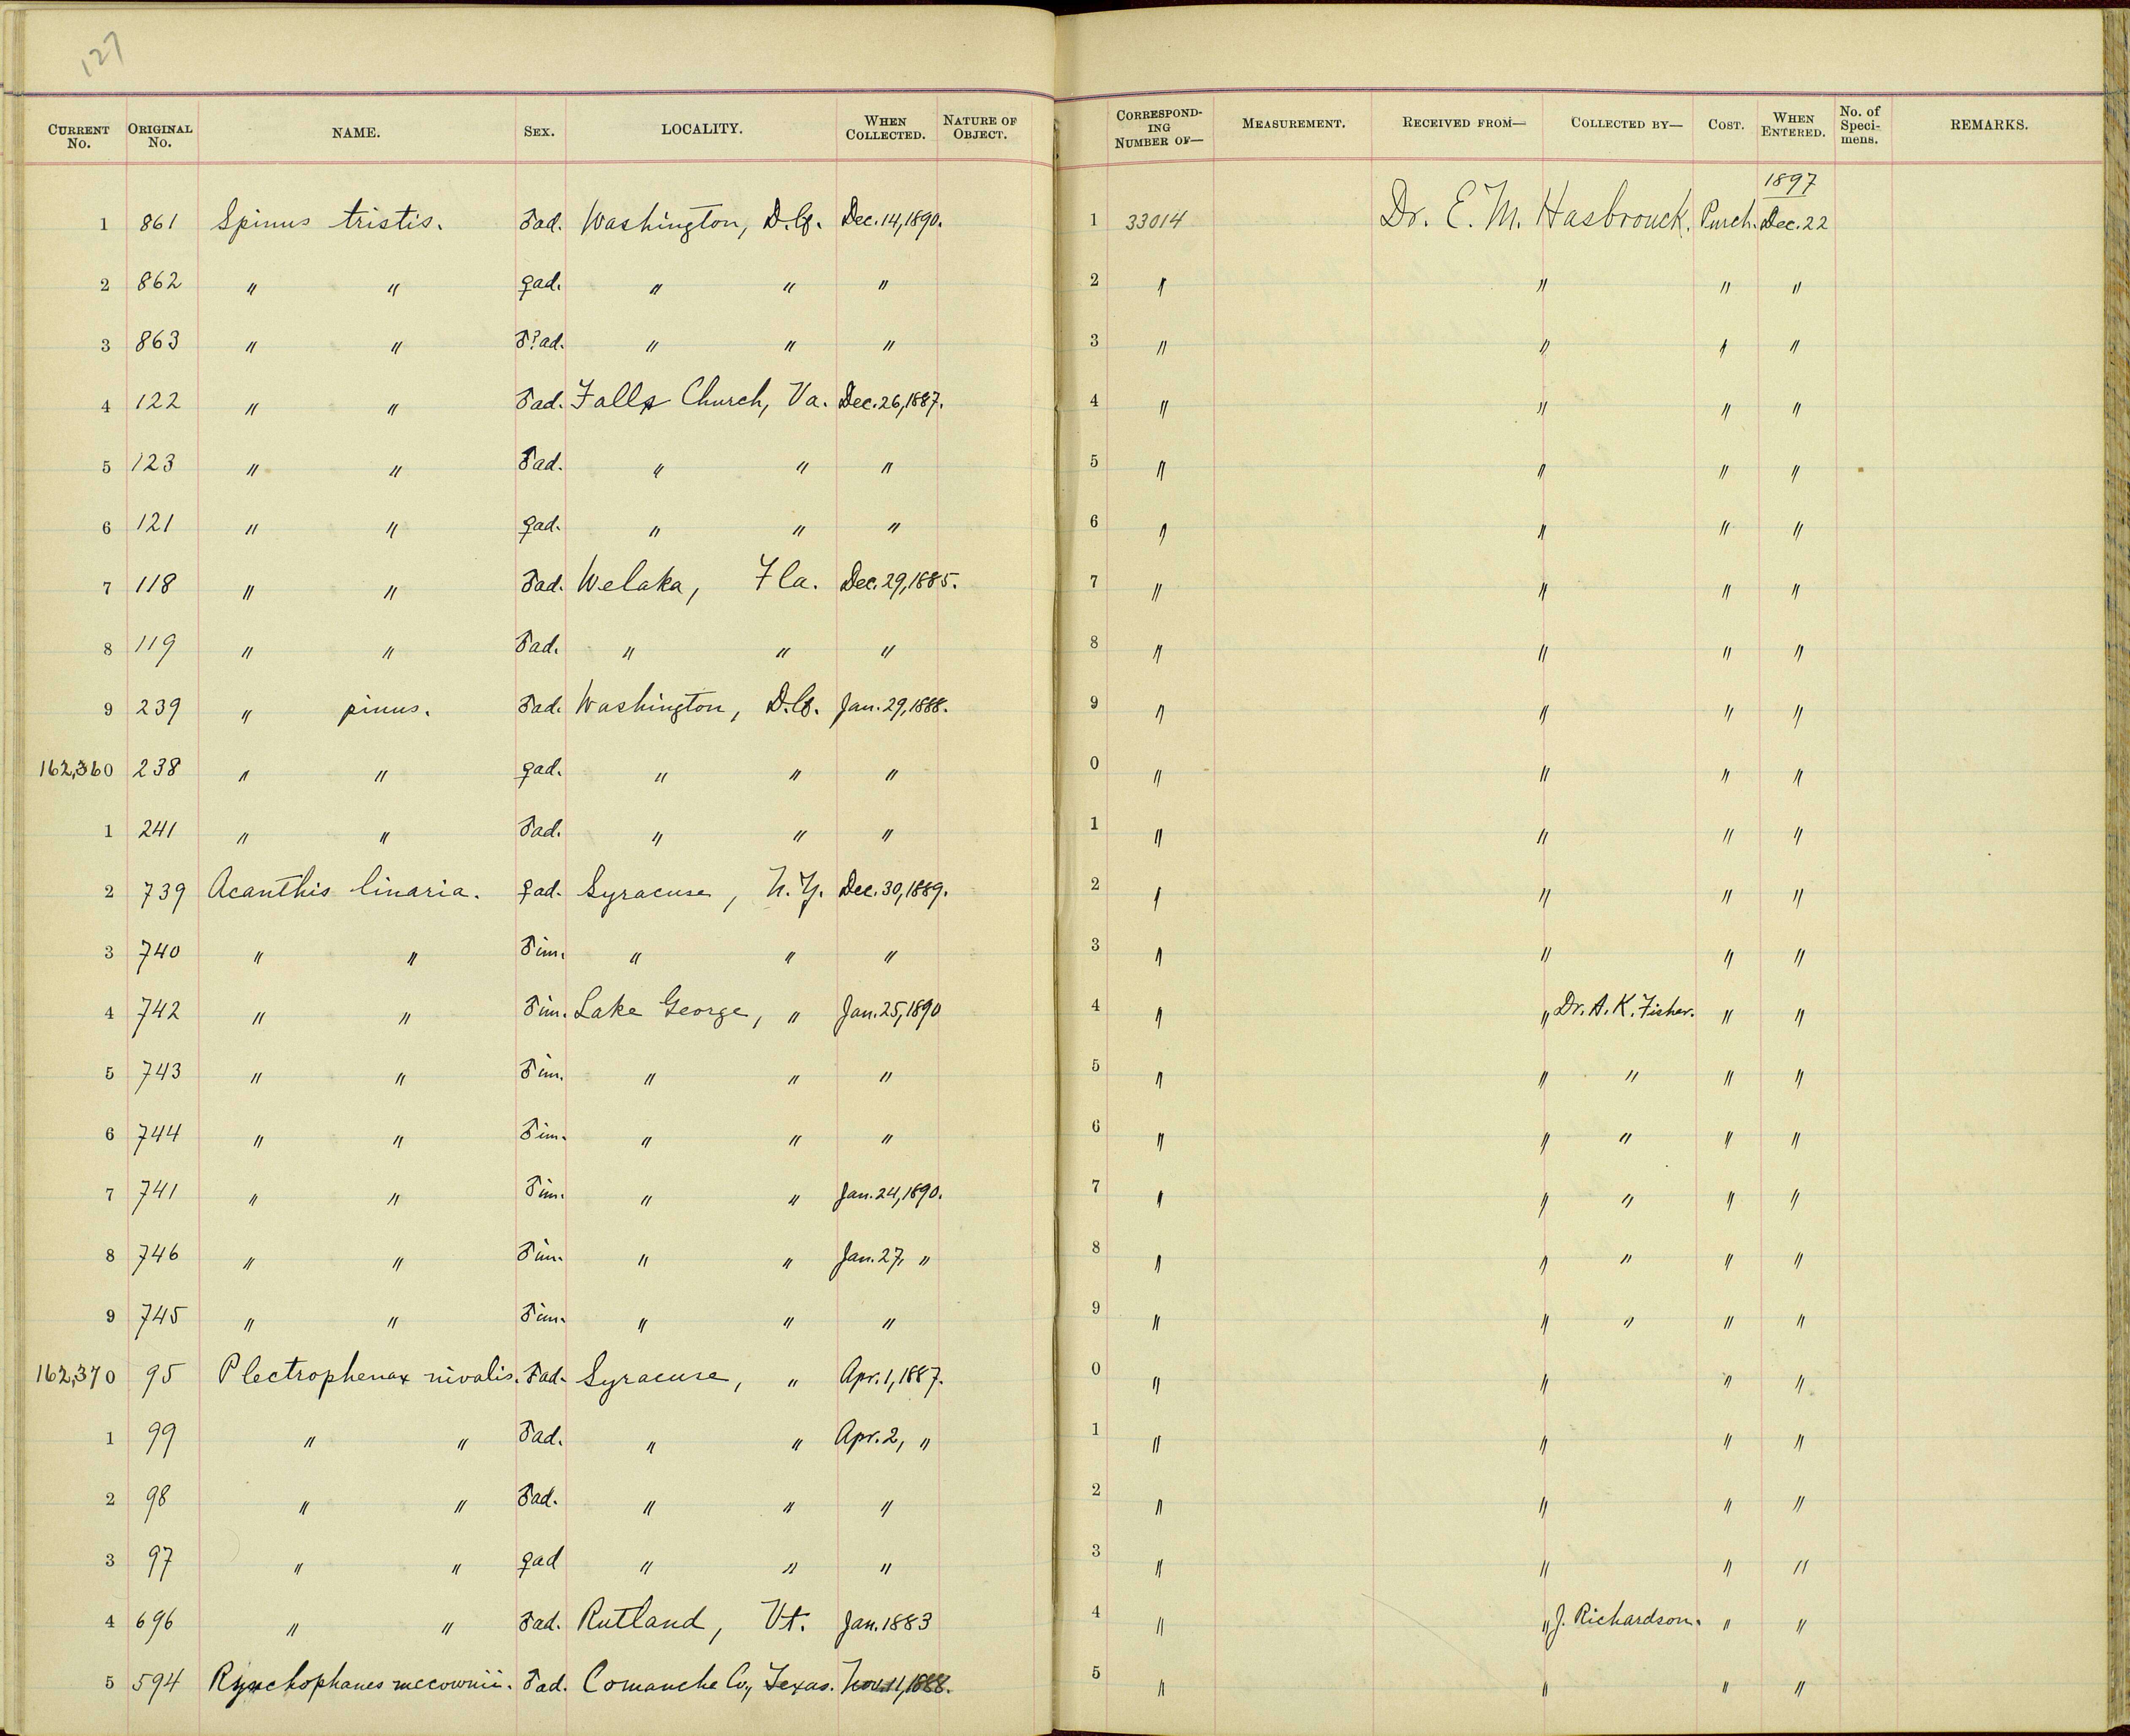 127
CURRENT No. ORIGINAL No. NAME. SEX. LOCALITY. WHEN COLLECTED. NATURE OF OBJECT. CORRESPONDING NUMBER OF— MEASUREMENT. RECEIVED FROM— COLLECTED BY— COST. WHEN ENTERED. No. of Specimens. REMARKS.
1897
1 861 Spinus tristis. ♂ad. Washington, D.C. Dec. 14, 1890. 1 33014 Dr. E. M. Hasbrouck. Purch. Dec. 22
2 862 " " ♀ad. " " " 2 " " " "
3 863 " " ♂?ad. " " " 3 " " " "
4 122 " " ♂ad. Falls Church, Va. Dec. 26, 1887. 4 " " " "
5 123 " " ♂ad. " " " 5 " " " "
6 121 " " ♀ad. " " " 6 " " " "
7 118 " " ♂ad. Welaka, Fla. Dec. 29, 1885. 7 " " " "
8 119 " " ♂ad. " " " 8 " " " "
9 239 " pinus. ♂ad. Washington, D.C. Jan. 29, 1888. 9 " " " "
162,360 238 " " ♀ad. " " " 0 " " " "
1 241 " " ♂ad. " " " 1 " " " "
2 739 Acanthis linaria. ♀ad. Syracuse, N.Y. Dec. 30, 1889. 2 " " " "
3 740 " " ♂im. " " " 3 " " " "
4 742 " " ♂im. Lake George, " Jan. 25, 1890 4 " " Dr. A. K. Fisher. " "
5 743 " " ♂im. " " " 5 " " " " "
6 744 " " ♂im. " " " 6 " " " " "
7 741 " " ♂im. " " Jan. 24, 1890. 7 " " " " "
8 746 " " ♂im. " " Jan. 27, " 8 " " " " "
9 745 " " ♂im. " " " 9 " " " " "
162,370 95 Plectrophenax nivalis. ♂ad. Syracuse, " Apr. 1, 1887. 0 " " " "
1 99 " " ♂ad. " " Apr. 2, " 1 " " " "
2 98 " " ♂ad. " " " 2 " " " "
3 97 " " ♀ad " " " 3 " " " "
4 696 " " ♂ad. Rutland, Vt. Jan. 1883 4 " " J. Richardson. " "
5 594 Rynchophanes mccownii. ♂ad. Comanche Co., Texas. Nov. 11, 1888. 5 " " " "